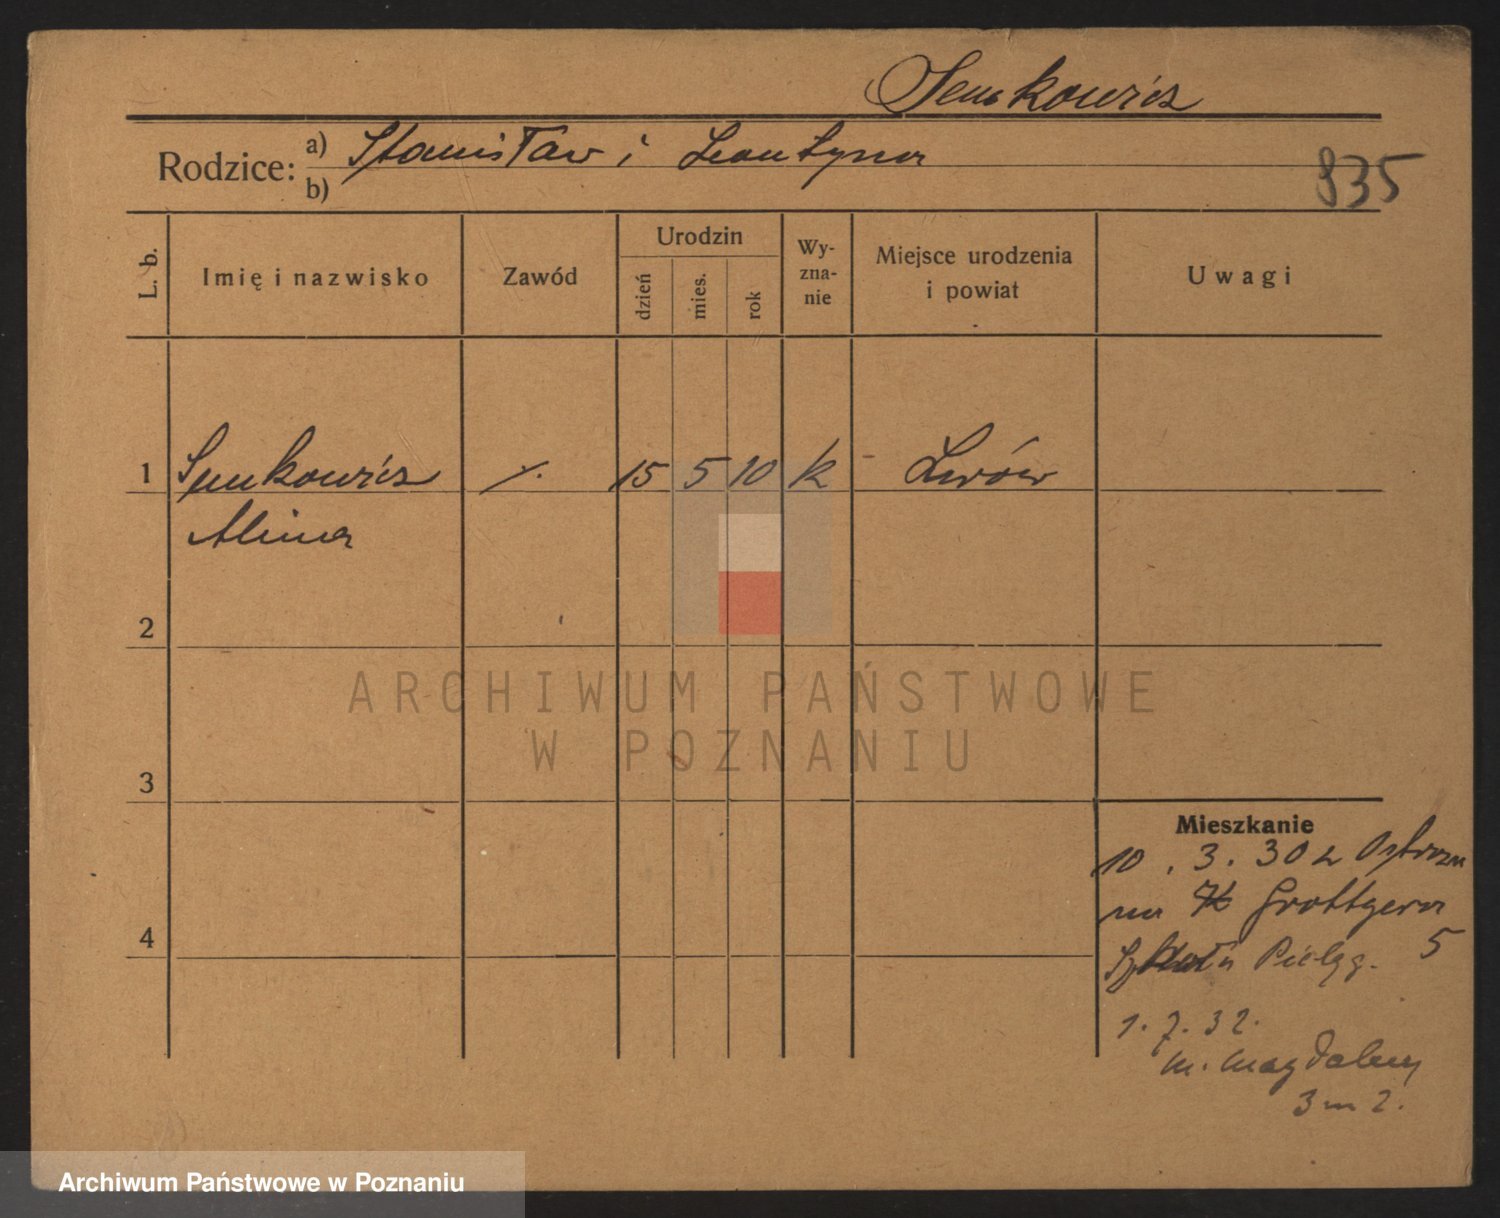 Senkowicz
Rodzice: a) Stanisław i Leontyna
b)
835
L. b.
Imię i nazwisko
Zawód
Urodzin
dzień
mies.
rok
Wy-
zna-
nie
Miejsce urodzenia
i powiat
Uwagi
1 Senkowicz ∕. 15 5 10 k Lwów
Alina
2
3
4
Mieszkanie
10. 3. 30 z
na Grottgera
5
Pielęg.
1. 7. 32.
m. Magdaleny
3 m 2.
ARCHIWUM PAŃSTWOWE
W POZNANIU
Archiwum Państwowe w Poznaniu